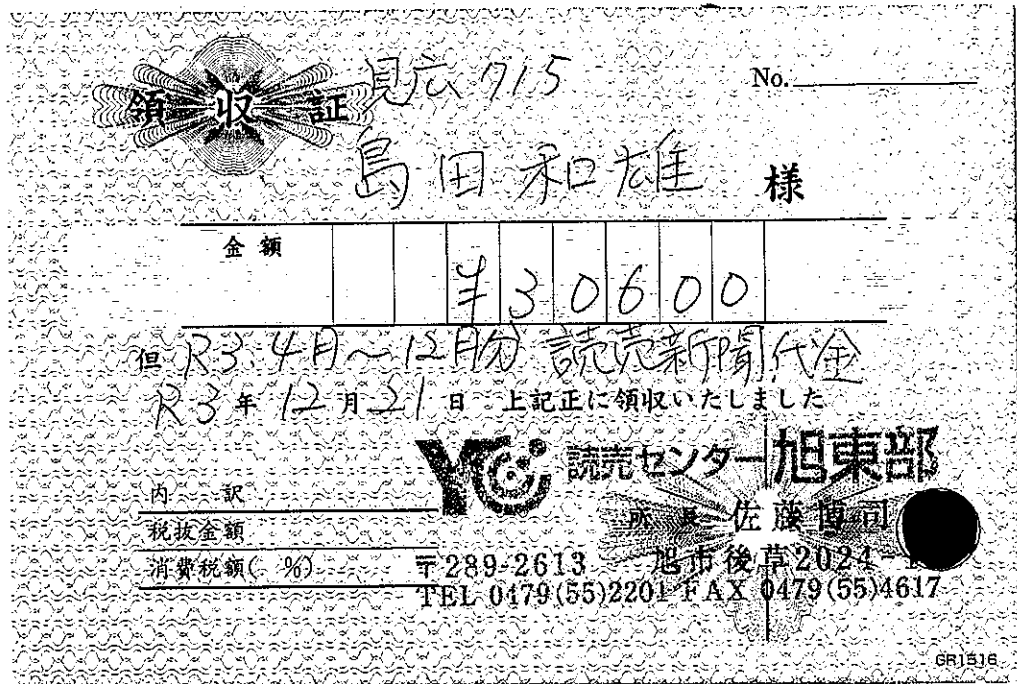 領収証
見広715
No.
島田和雄 様
金額 ¥30600
但 R3.4月〜12月分 読売新聞代金
R3年12月21日 上記正に領収いたしました
YC 読売センター旭東部
内訳
所長 佐藤博司
税抜金額
消費税額( %)
〒289-2613 旭市後草2024-
TEL 0479(55)2201 FAX 0479(55)4617
GR1516